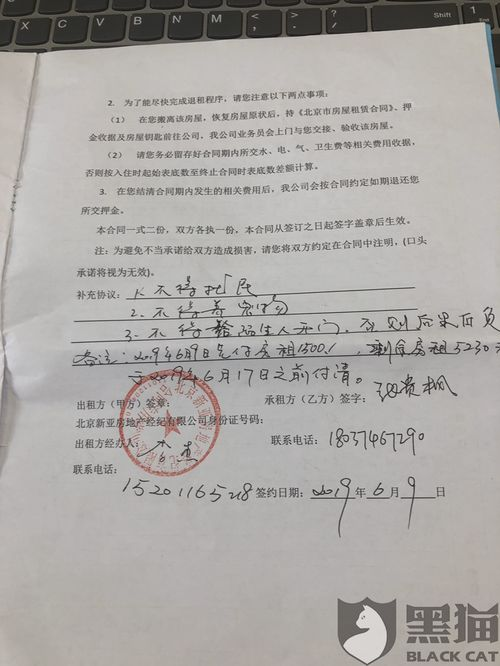 2. 为了能尽快完成退租程序，请您注意以下两点事项：
（1） 在您搬离该房屋，恢复房屋原状后，持《北京市房屋租赁合同》、押
金收据及房屋钥匙前往公司，我公司业务员会上门与您交接、验收该房屋。
（2） 请您务必留存好合同期内所交水、电、气、卫生费等相关费用收据，
否则按入住时起始表底数至终止合同时表底数差额计算。
3. 在您结清合同期内发生的相关费用后，我公司会按合同约定如期退还您
所交押金。
本合同一式二份，双方各执一份，本合同从签订之日起签字盖章后生效。
注：为避免不当承诺给双方造成损害，请您将双方约定在合同中注明，(口头
承诺将视为无效)。
补充协议：1、不得扰民
2、不得养宠物
3、不得给陌生人开门，否则后果自负
备注：2019年6月9日先付房租1500，剩余房租5230元
于2019年6月17日之前付清。
出租方（甲方）签章： 承租方（乙方）签字：
北京新亚房地产经纪有限公司身份证号码：
出租方经办人： 联系电话：18037467290
联系电话：
15201165218 签约日期：2019年6月9日
黑猫
BLACK CAT